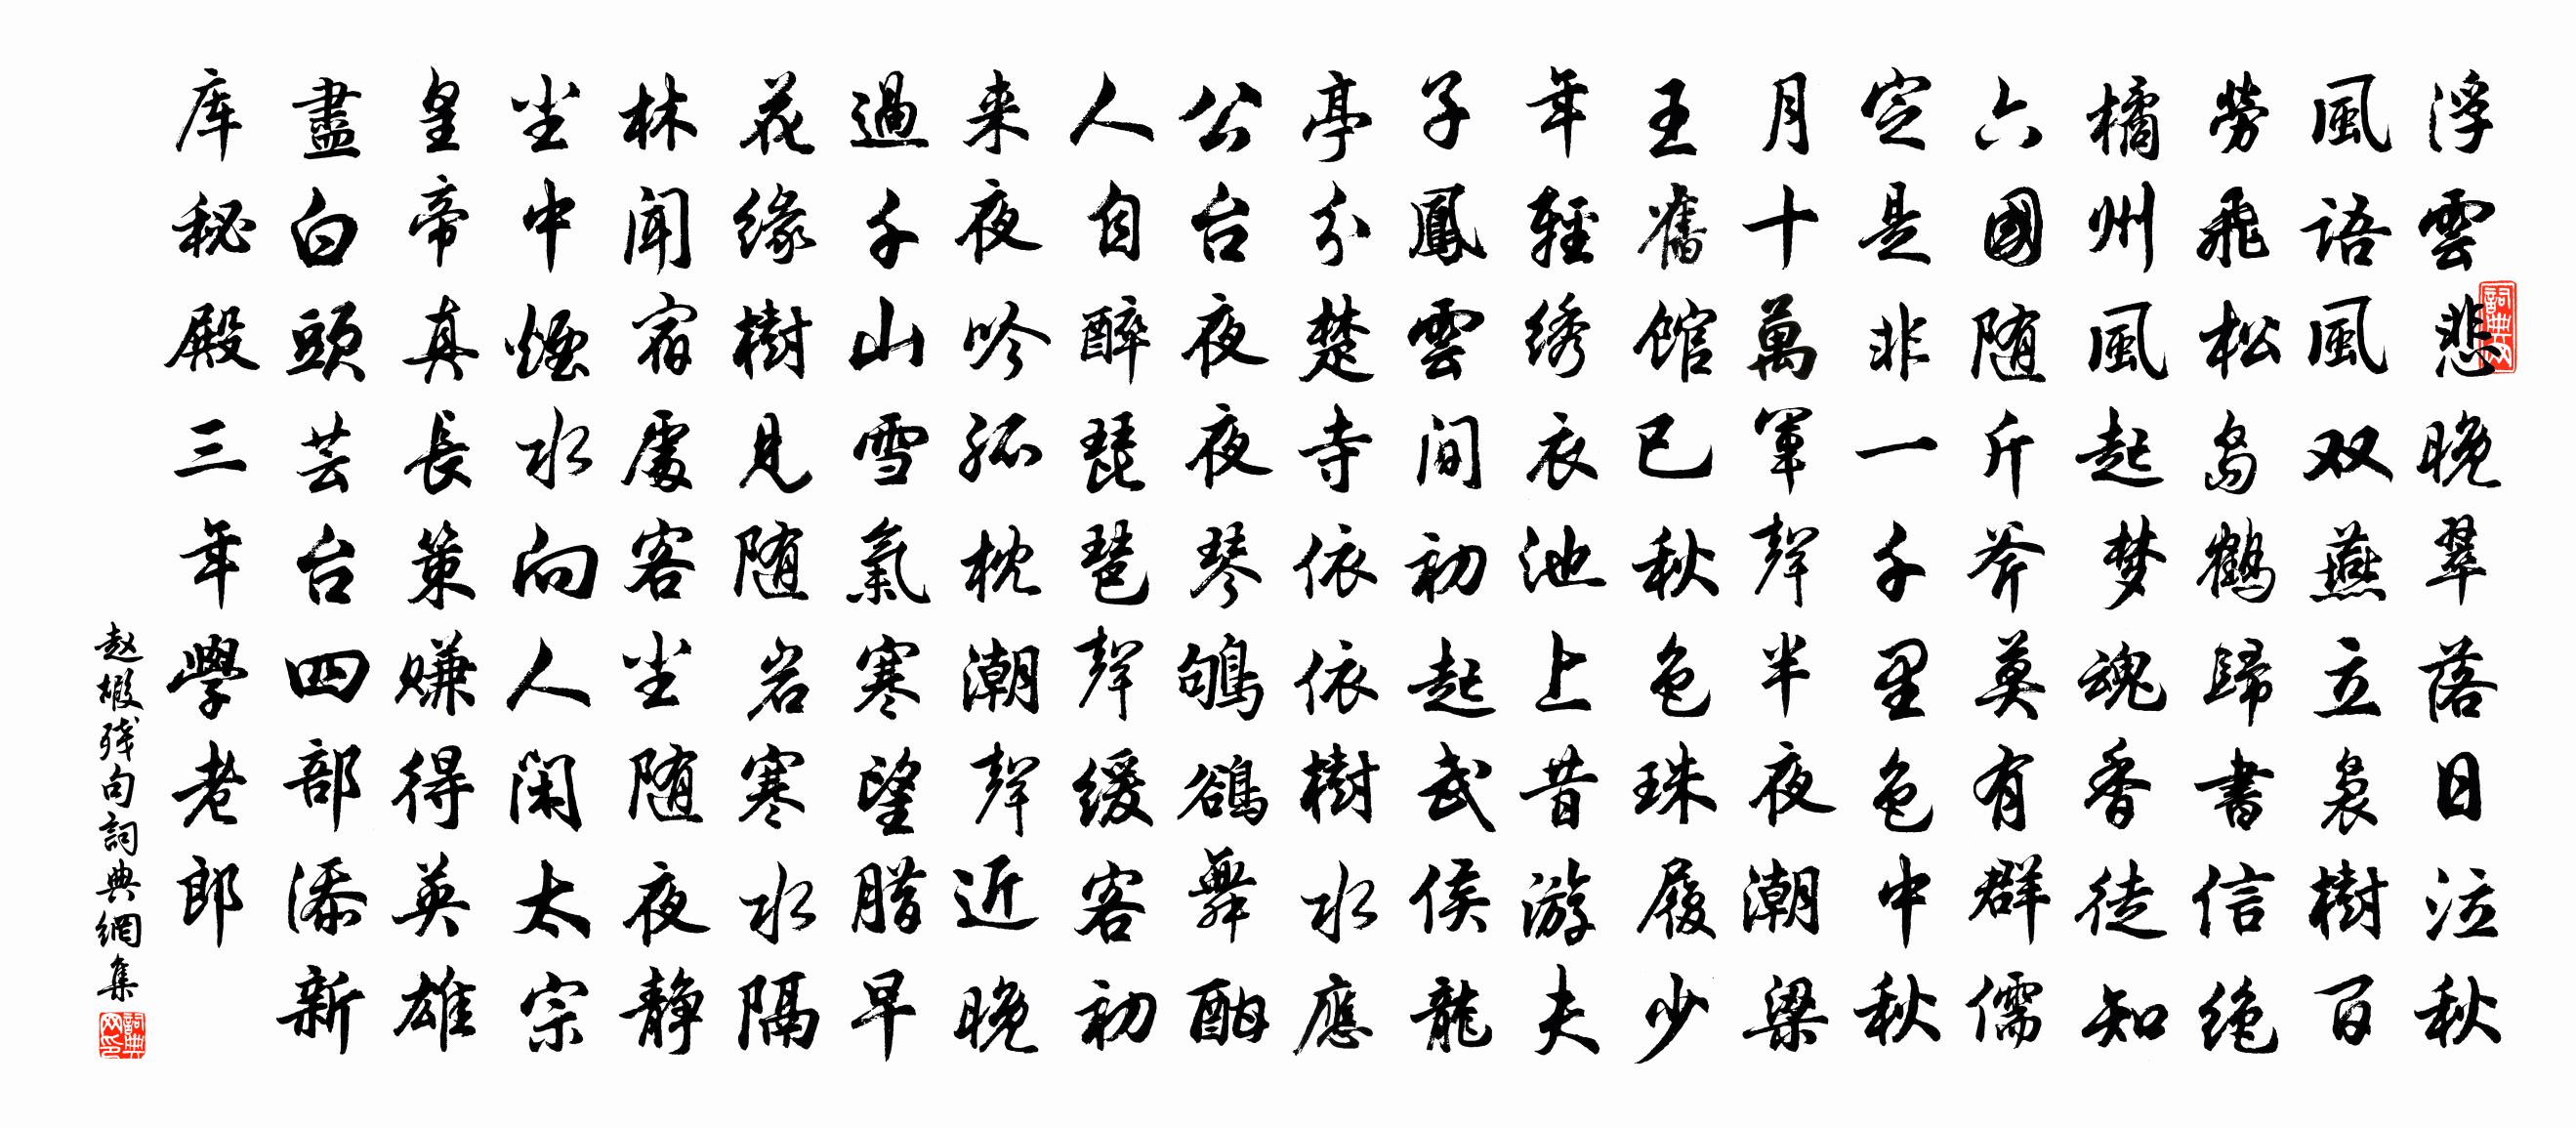 浮雲悲晚翠落日泣秋
風語風双燕立裊樹百
勞飛松島鶴歸書信绝
橘州風起梦魂香徒知
六國随斤斧莫有群儒
定是非一千里色中秋
月十萬軍聲半夜潮梁
王舊馆已秋色珠履少
年輕绣衣池上昔游夫
子鳳雲间初起武侯龍
亭分楚寺依依樹水應
公台夜夜琴鴝鵒舞酣
人自醉琵琶聲缓客初
来夜吟孤枕潮聲近晚
過千山雪氣寒望腊早
花缘樹見随岩寒水隔
林聞宿處客坐随夜静
坐中煙水向人闲太宗
皇帝真長策赚得英雄
盡白頭芸台四部添新
库秘殿三年學老郎
赵嘏残句詞典網集